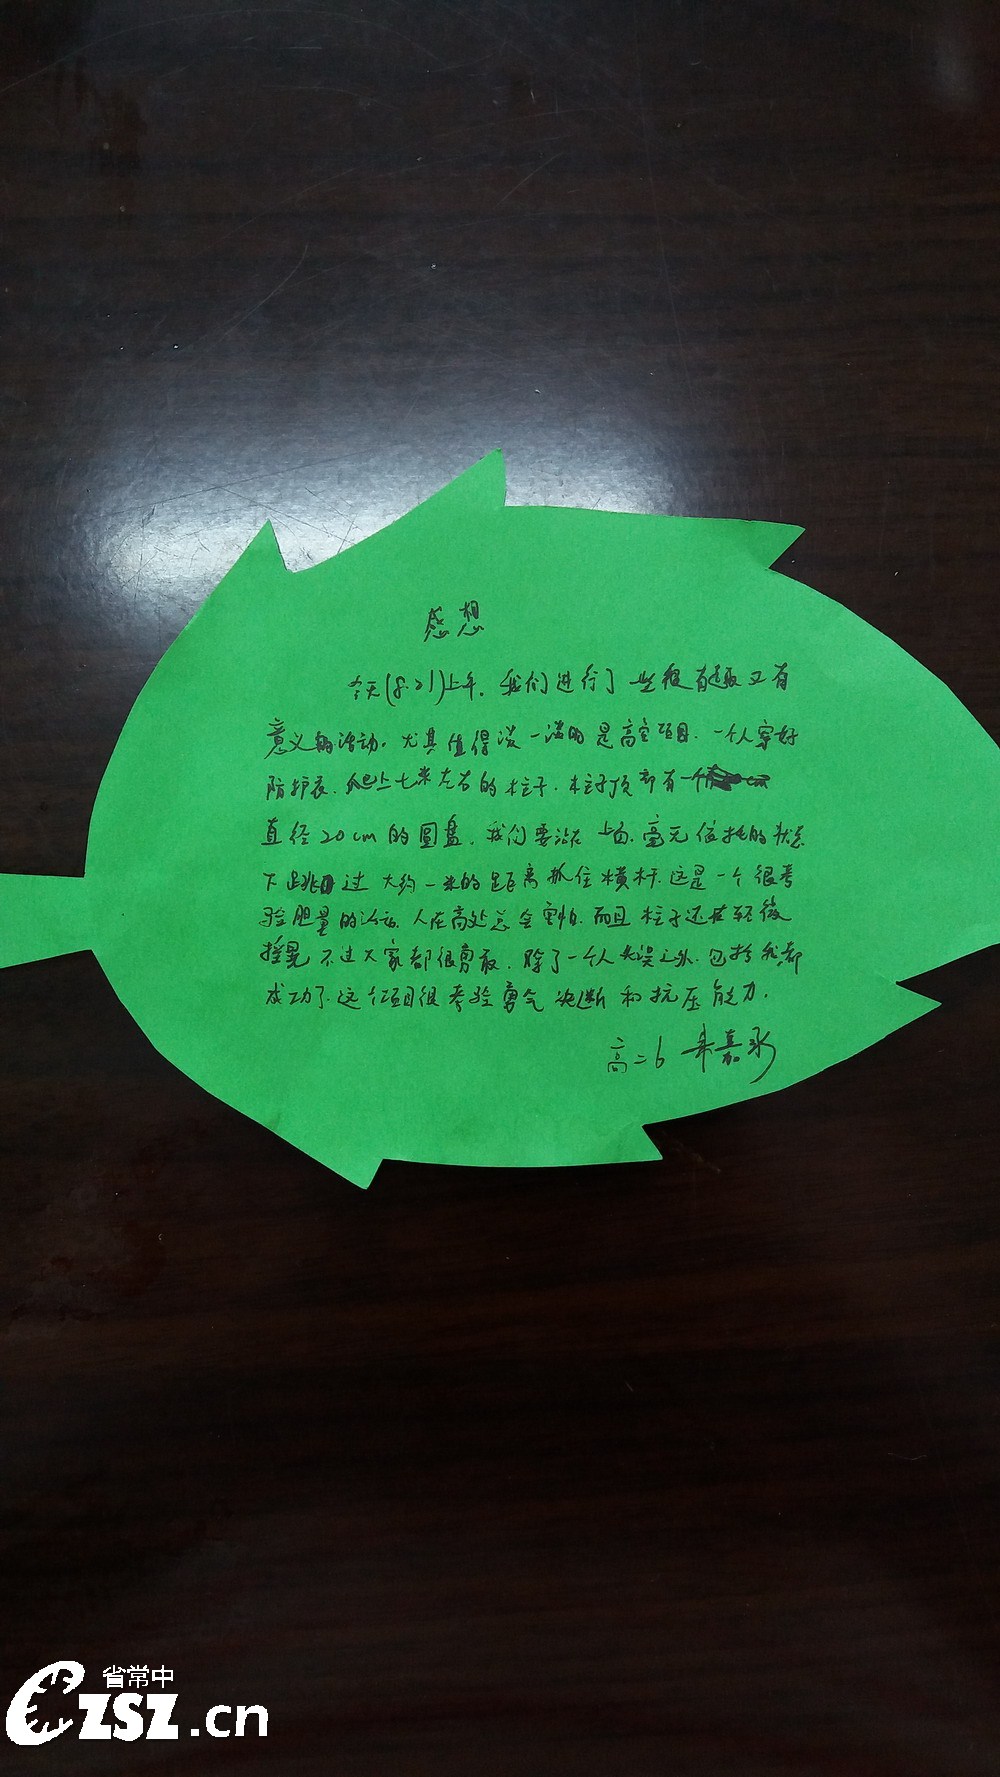 感想
今天(8.21)上午,我们进行了一些很有趣又有
意义的活动。尤其值得谈一谈的是高空项目.一个人穿好
防护衣.爬上七米左右的柱子.柱子顶部有一个
直径20cm的圆盘.我们要站在上面.毫无依托的状态
下跳过大约一米的距离抓住横杆.这是一个很考
验胆量的活动.人在高处总会害怕.而且柱子还在轻微
摇晃.不过大家都很勇敢.除了一个人失误之外.包括我都
成功了.这个项目很考验勇气 决断和抗压能力.
高二6 嘉
省常中
CZSZ.cn